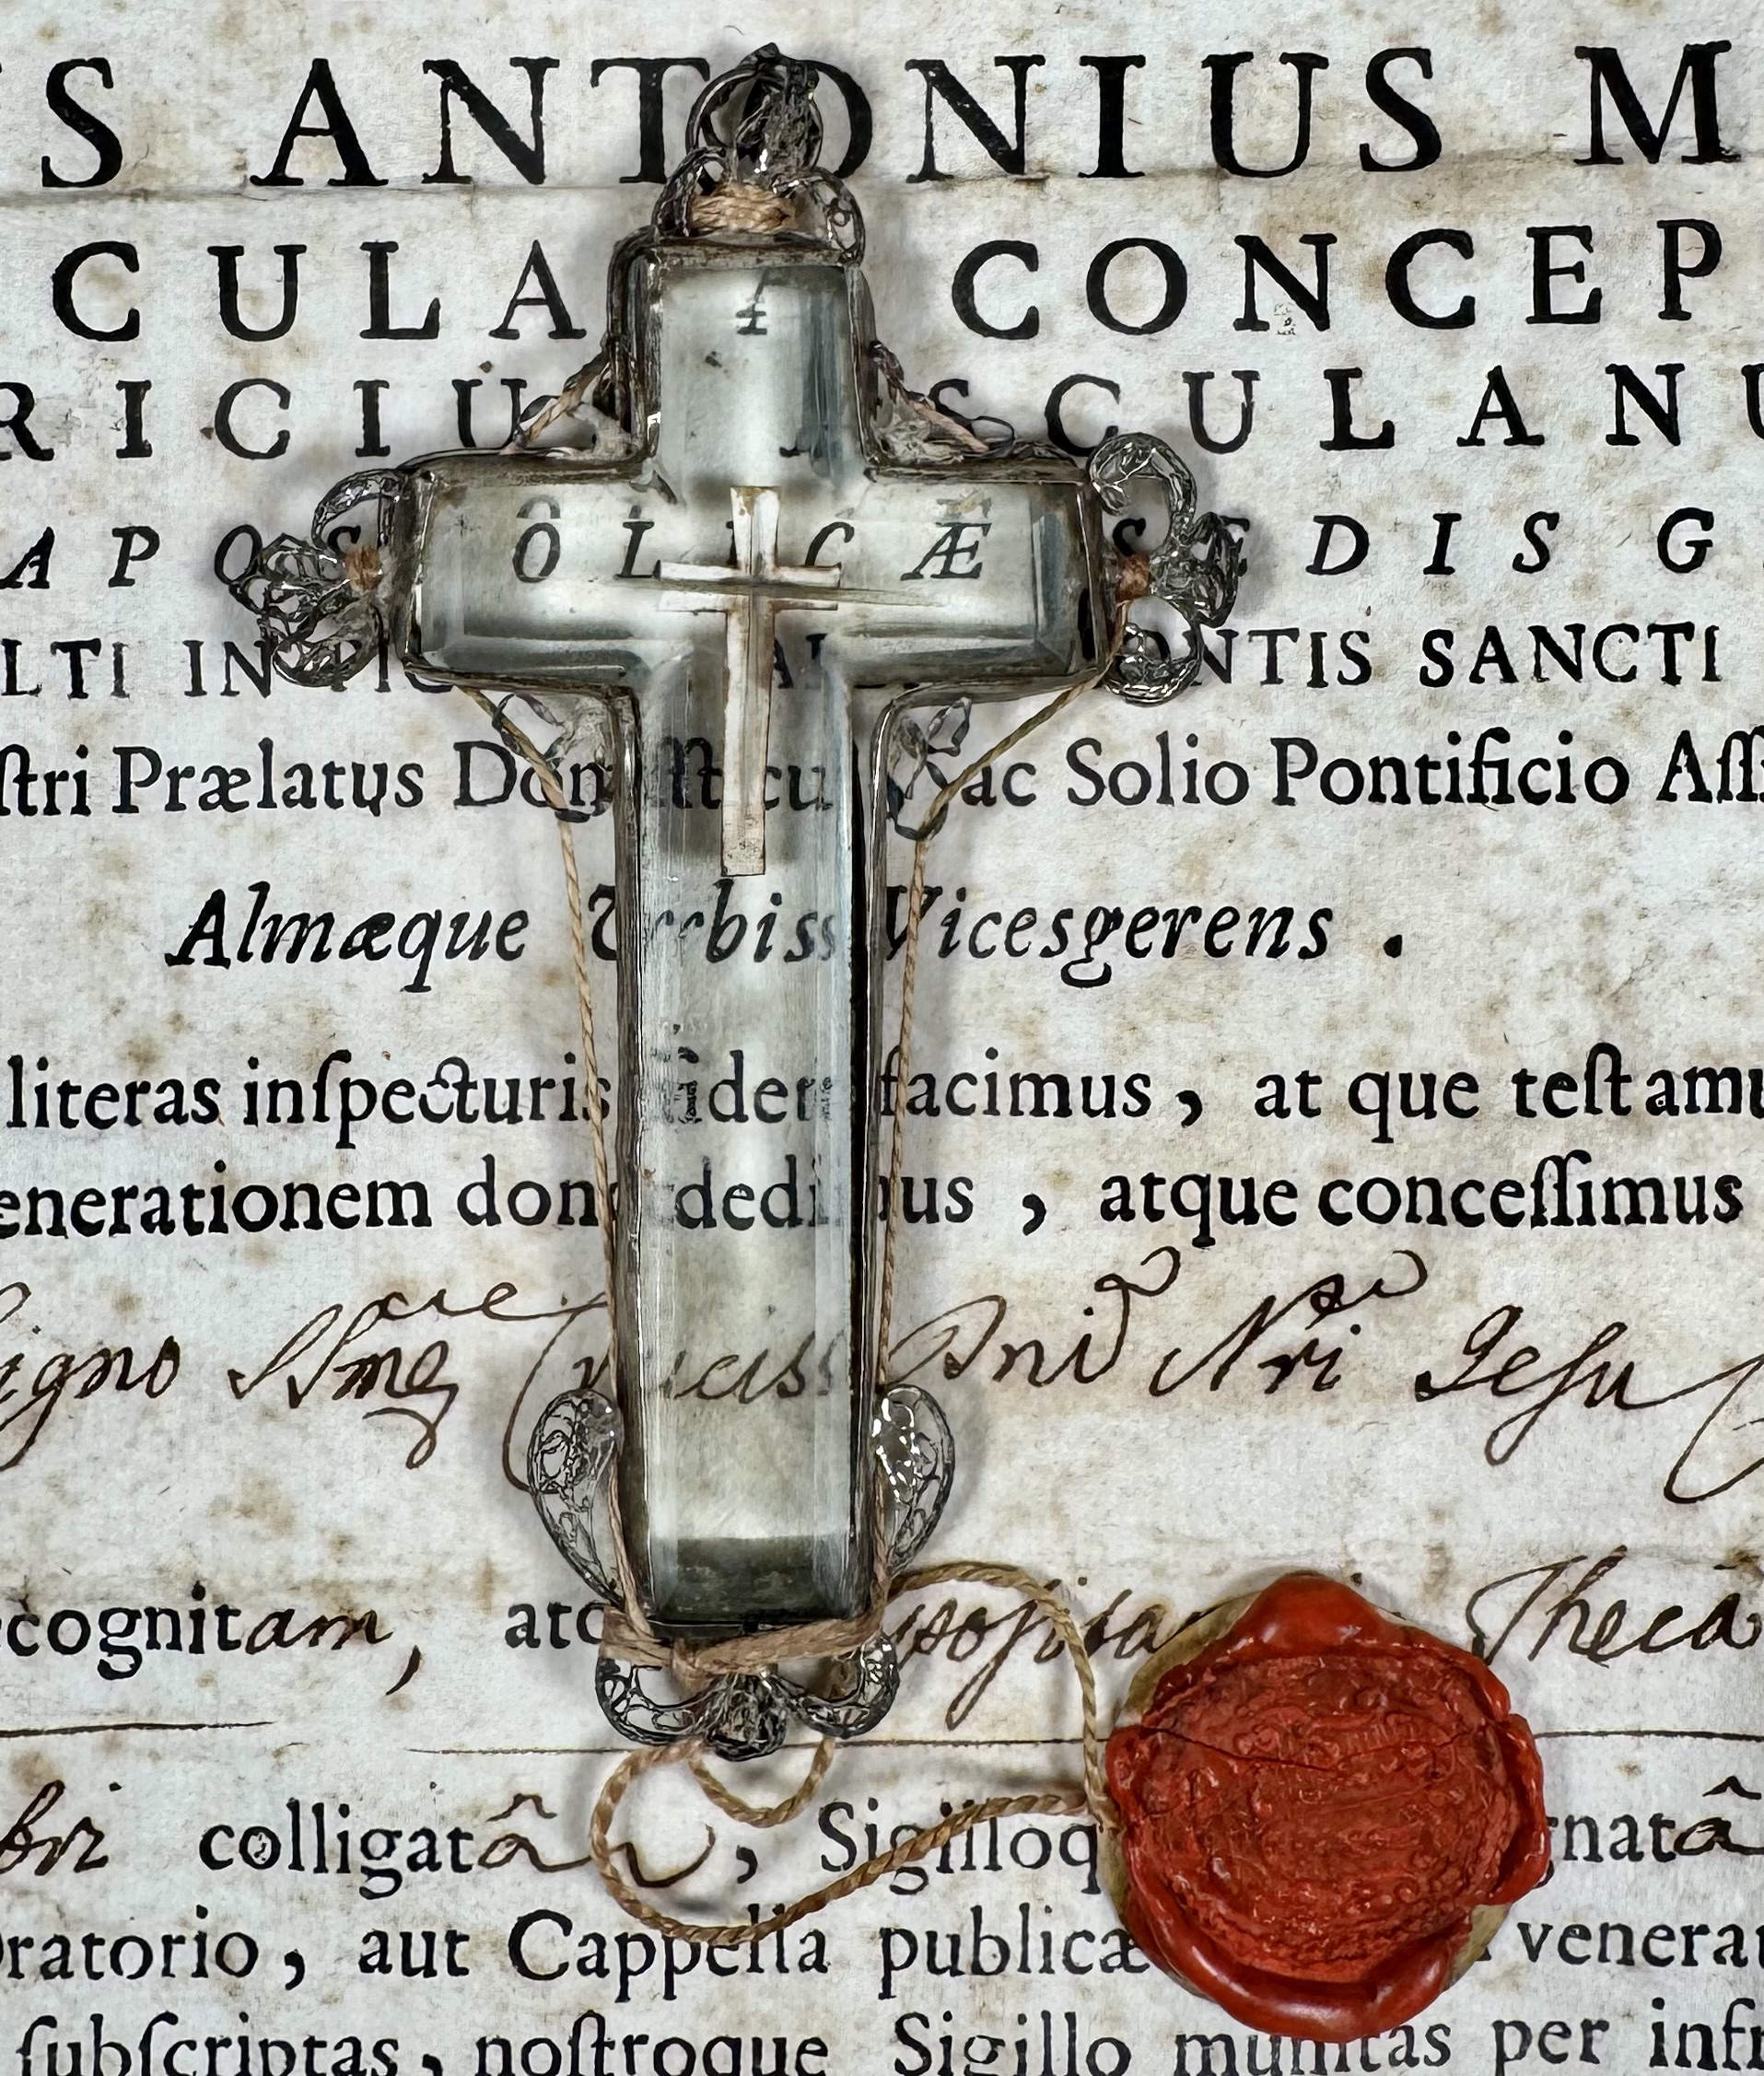 S ANTONIUS M
CULA CONCEP
RICIU SCULANU
APOSTOLICÆ SEDIS G
LTI IN ONTIS SANCTI
ſtri Prælatus Domeſticus, ac Solio Pontificio Aſſi
Almæque Urbis Vicesgerens .
literas inſpecturis fidem facimus , at que teſtamu
enerationem dono dedimus , atque conceſſimus
igno SSmæ Crucis Dni Nri Jesu
ecognitam, Theca
colligatâ , Sigilloq gnatâ
oratorio , aut Cappella publicæ venera
ſubſcriptas , noſtroque Sigillo munitas per infr